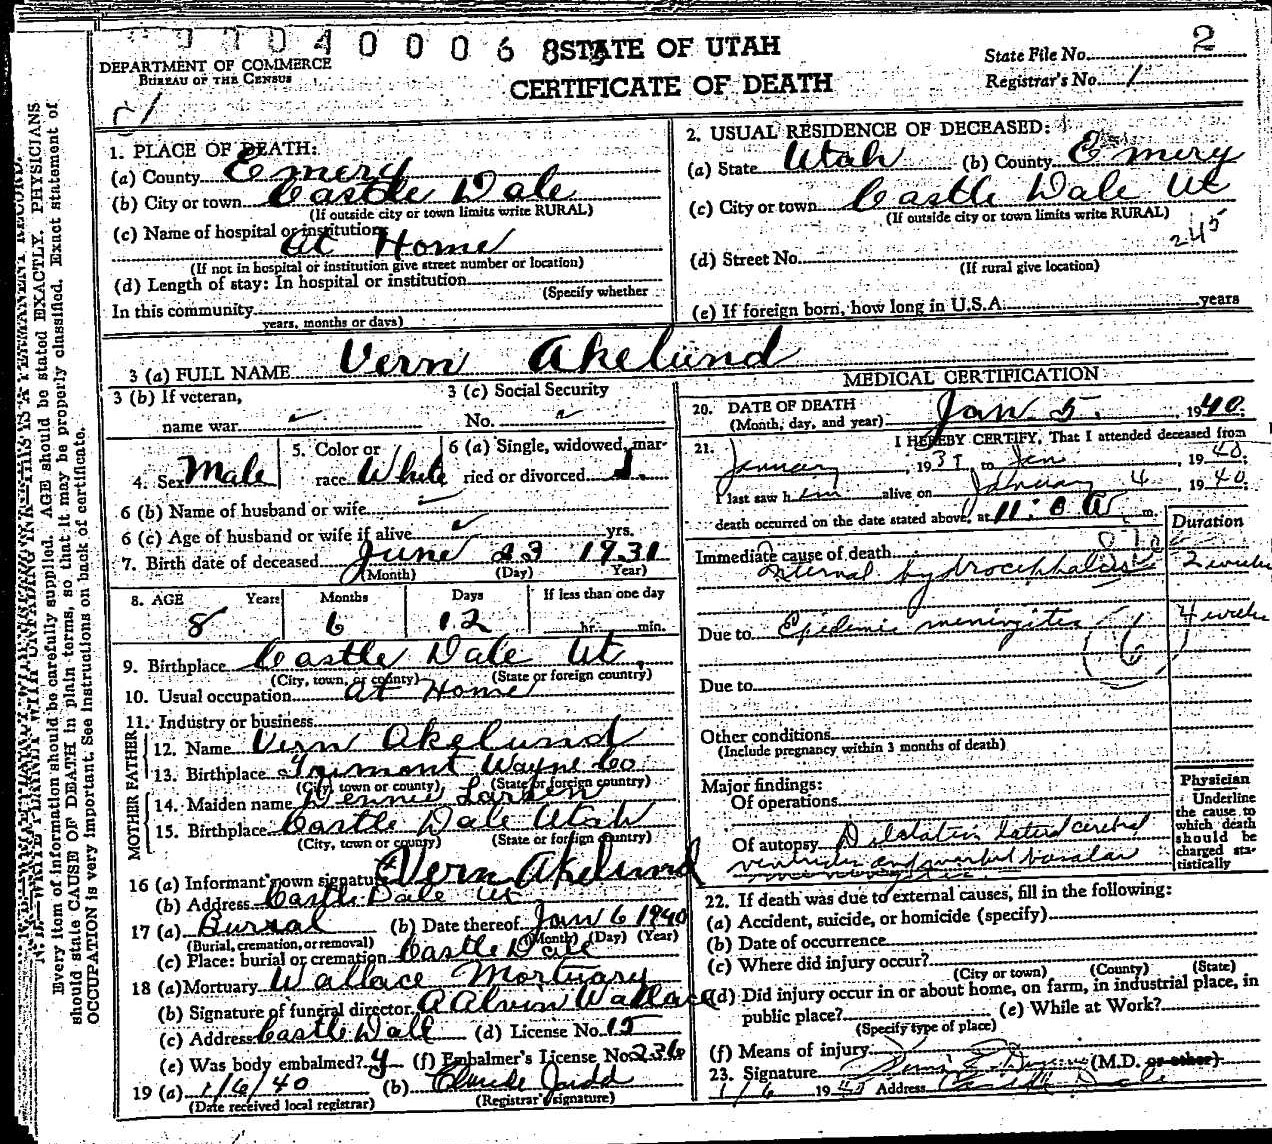 0 0 0 6 8
STATE OF UTAH
CERTIFICATE OF DEATH
DEPARTMENT OF COMMERCE
BUREAU OF THE CENSUS
State File No. 2
Registrar's No. 1
1. PLACE OF DEATH:
(a) County Emery
(b) City or town Castle Dale
(If outside city or town limits write RURAL)
(c) Name of hospital or institution
At Home
(If not in hospital or institution give street number or location)
(d) Length of stay: In hospital or institution
(Specify whether
In this community
years, months or days)
2. USUAL RESIDENCE OF DECEASED:
(a) State Utah (b) County Emery
(c) City or town Castle Dale Ut
(If outside city or town limits write RURAL)
245
(d) Street No.
(If rural give location)
(e) If foreign born, how long in U.S.A. years
3 (a) FULL NAME Vern Akelund
3 (b) If veteran,
name war
3 (c) Social Security
No.
4. Sex Male
5. Color or
race White
6 (a) Single, widowed, mar-
ried or divorced S.
6 (b) Name of husband or wife
6 (c) Age of husband or wife if alive yrs.
7. Birth date of deceased June 23 1931
(Month) (Day) Year)
8. AGE Years Months Days If less than one day
8 6 12 hr. min.
9. Birthplace Castle Dale Ut.
(City, town, or county) (State or foreign country)
10. Usual occupation At Home
11. Industry or business
FATHER
12. Name Vern Akelund
13. Birthplace Fremont Wayne Co
(City, town or county) (State or foreign country)
MOTHER
14. Maiden name Larsen
15. Birthplace Castle Dale Utah
(City, town or county) (State or foreign country)
16 (a) Informant's own signature Vern Akelund
(b) Address Castle Dale Ut
17 (a) Burial (b) Date thereof Jan 6 1940
(Burial, cremation, or removal) (Month) (Day) (Year)
(c) Place: burial or cremation Castle Dale
18 (a) Mortuary Wallace Mortuary
(b) Signature of funeral director A Alvin Wallace
(c) Address Castle Dale (d) License No. 15
(e) Was body embalmed? y (f) Embalmer's License No. 236
19 (a) 1/6/40 (b) Claude Judd
(Date received local registrar) (Registrar's signature)
MEDICAL CERTIFICATION
20. DATE OF DEATH
(Month, day, and year) Jan 5. , 1940.
21. I HEREBY CERTIFY, That I attended deceased from
January , 193 to Jan , 1940.
I last saw him alive on January 4 , 1940
death occurred on the date stated above, at 11:0 A. m.
Duration
Immediate cause of death
Internal hydrocephalus 2 weeks
Due to Epidemic meningites 4 weeks
6
Due to
Other conditions
(Include pregnancy within 3 months of death)
Major findings:
Of operations
Of autopsy Dilatation lateral cerebral
ventricles and marked basalar
Physician
Underline
the cause to
which death
should be
charged sta-
tistically
22. If death was due to external causes, fill in the following:
(a) Accident, suicide, or homicide (specify)
(b) Date of occurrence
(c) Where did injury occur?
(City or town) (County) (State)
(d) Did injury occur in or about home, on farm, in industrial place, in
public place? (e) While at Work?
(Specify type of place)
(f) Means of injury
23. Signature (M.D. or other)
1/6 1940 Address Castle Dale
Every item of information should be carefully supplied. AGE should be stated EXACTLY. PHYSICIANS
should state CAUSE OF DEATH in plain terms, so that it may be properly classified. Exact statement of
OCCUPATION is very important. See instructions on back of certificate.